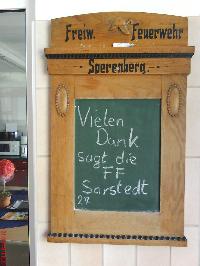 Freiw. Feuerwehr
Sperenberg.
Vielen
Dank
sagt die
FF
Sarstedt